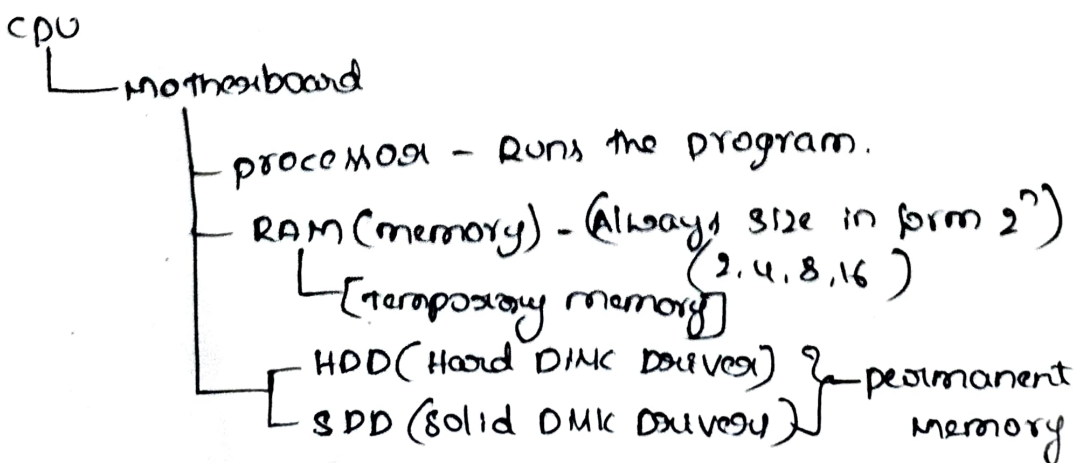 CPU
Motherboard
processor - Runs the program.
RAM (memory) - (Always size in form 2ⁿ)
(2, 4, 8, 16)
[temporary memory]
HDD (Hard Disk Driver)
SDD (Solid Disk Driver)
permanent
memory